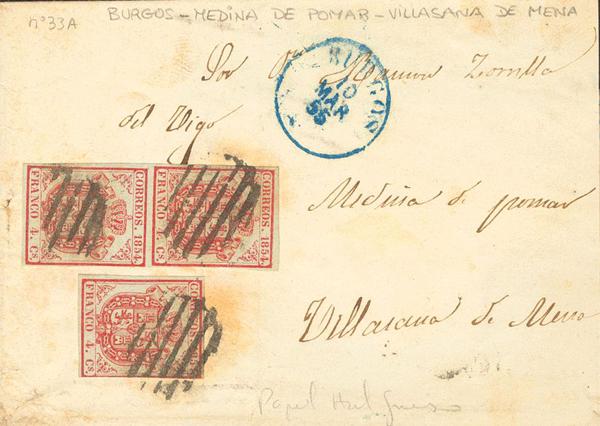 nº33A
BURGOS - MEDINA DE POMAR - VILLASANA DE MENA
BURGOS
10
MAR
55
Sor Dn Ramon Zorrilla
del Vigo
CORREOS. 1854.
FRANCO 4. Cs
CORREOS. 1854.
FRANCO 4. Cs
Medina de pomar
CORREOS. 1854.
FRANCO 4. Cs
Villasana de Mena
Papel